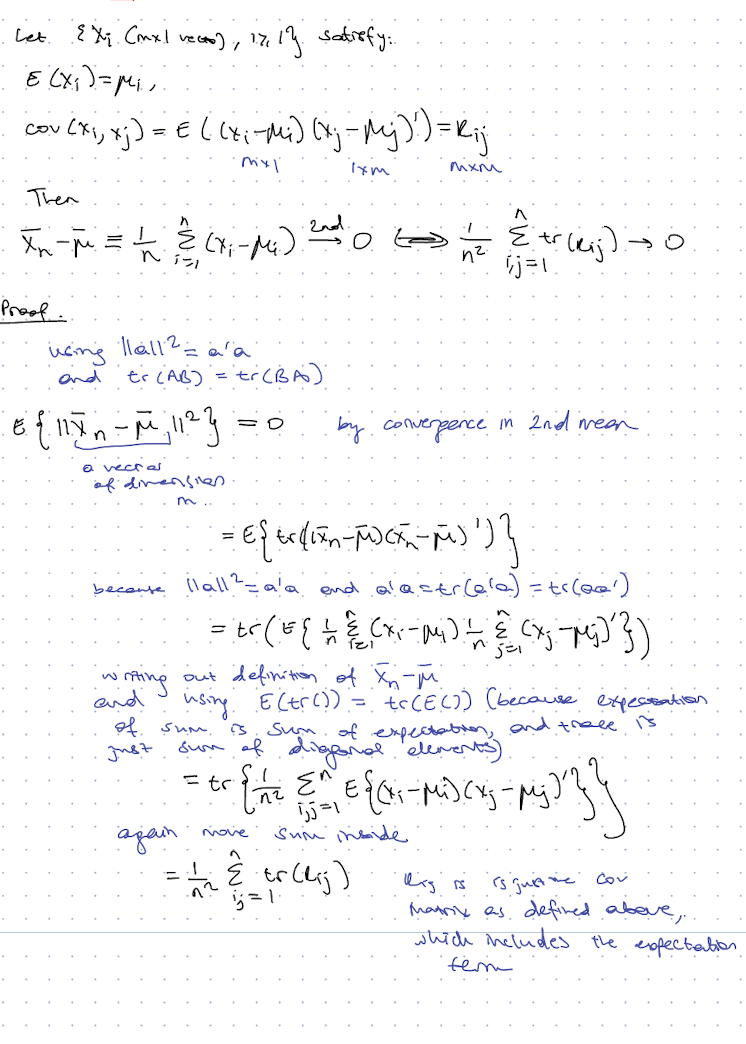 Let {Xi (m×1 vector), i≥1} satisfy:
E(Xi)=μi,
cov(Xi, Xj) = E((Xi-μi)(Xj-μj)')=Rij
m×1 1×m m×m
Then
X̄n-μ̄ ≡ 1/n Σ_{i=1}^n (Xi-μi) →^{2nd} 0 ⟺ 1/n² Σ_{i,j=1}^n tr(Rij) → 0
Proof.
using ||a||² = a'a
and tr(AB) = tr(BA)
E{||X̄n - μ̄||²} = 0 by convergence in 2nd mean
a vector
of dimension
m.
= E{tr((X̄n-μ̄)(X̄n-μ̄)')}
because ||a||²=a'a and a'a=tr(a'a)=tr(aa')
= tr(E{1/n Σ_{i=1}^n (Xi-μi) 1/n Σ_{j=1}^n (Xj-μj)'})
writing out definition of X̄n-μ̄
and using E(tr()) = tr(E()) (because expectation
of sum is sum of expectation, and trace is
just sum of diagonal elements)
= tr{1/n² Σ_{i,j=1}^n E{(Xi-μi)(Xj-μj)'}}
again move sum inside
= 1/n² Σ_{i,j=1}^n tr(Rij) Rij is cov
matrix as defined above,
which includes the expectation
term